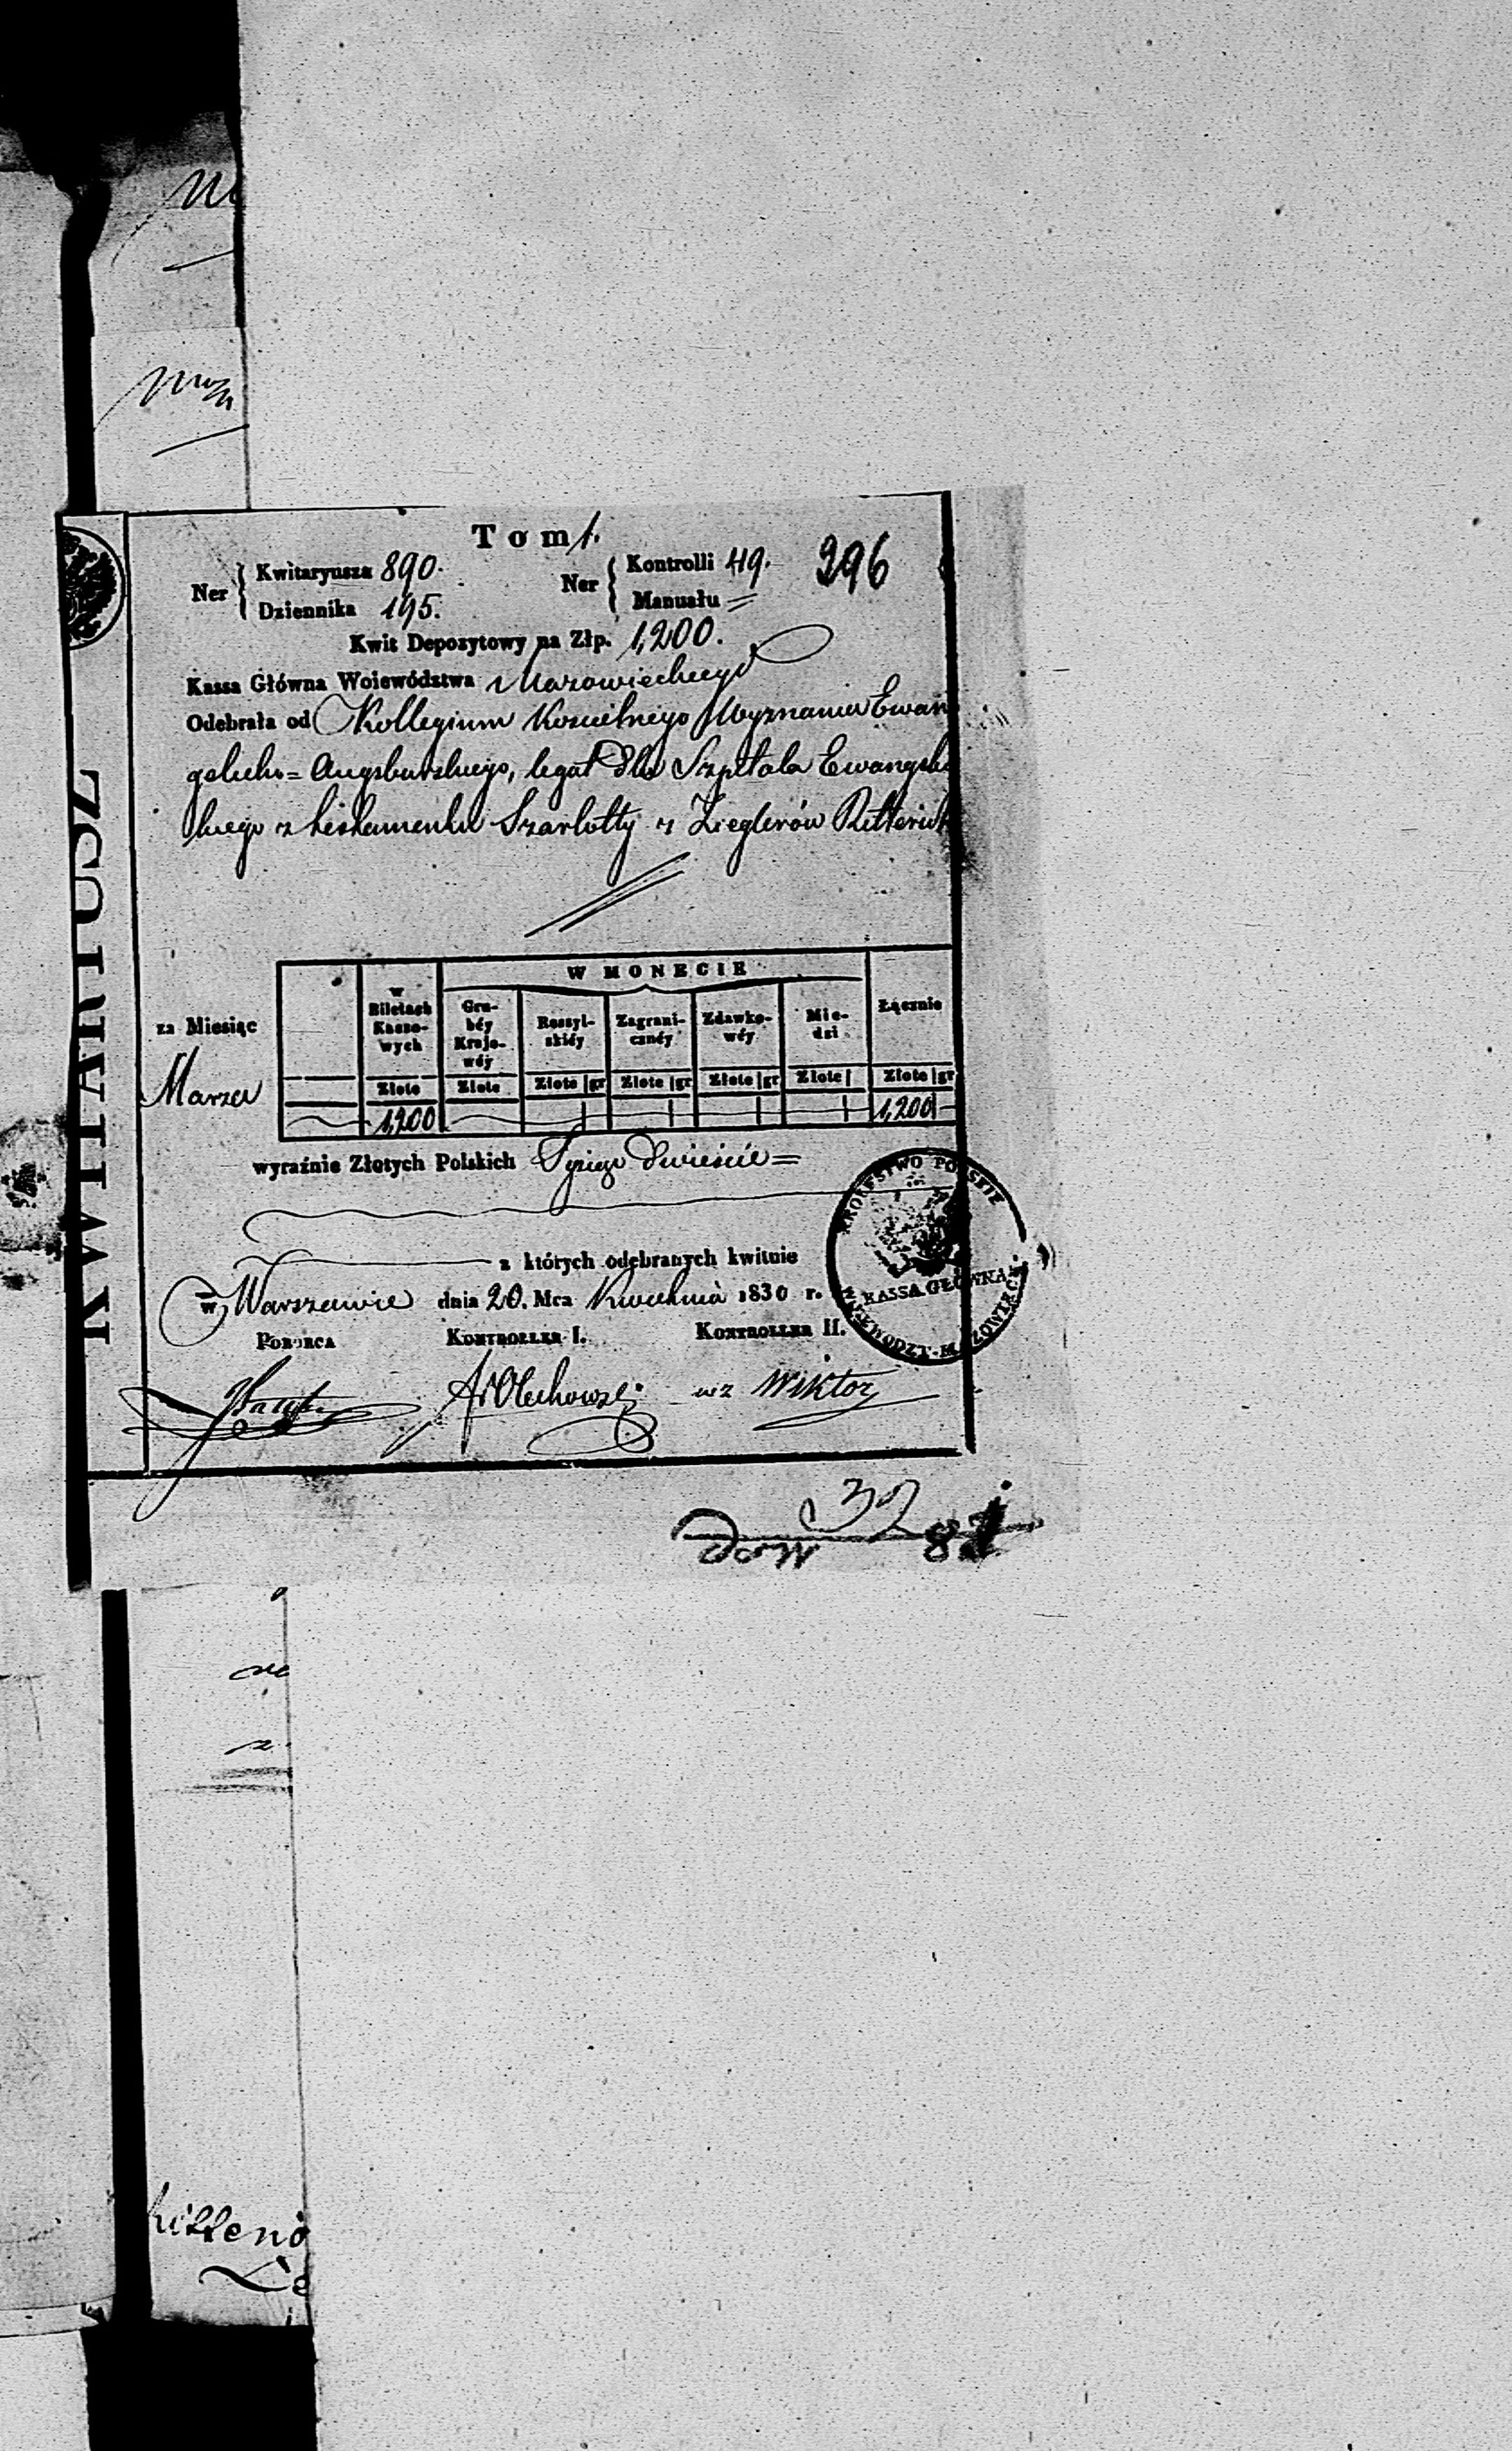 Tom 1.
Ner Kwitaryusza 890. Ner Kontrolli 49. 296
Dziennika 195. Manuału =
Kwit Depozytowy na Złp. 1,200.
Kassa Główna Woiewództwa Mazowieckiego
Odebrała od Kollegium Kościelnego Wyznania Ewan
gelicko= Augsburskiego, legat dla Szpitala Ewangelic
kiego z testamentu Szarlotty z Zieglerów Ritterich
W MONECIE
za Miesiąc
Marzec
w Biletach Kasso-wych
Gru-béy Krajo-wéy
Rossyi-skiéy
Zagrani-cznéy
Zdawko-wéy
Mie-dzi
Łącznie
Złote Złote Złote gr Złote gr Złote gr Złote Złote gr
1,200 1,200 —
wyraźnie Złotych Polskich Tysiąc Dwieście =
z których odebranych kwituie
w Warszawie dnia 20. Mca Kwietnia 1830 r.
POBORCA KONTROLLER I. KONTROLLER II.
wz Wiktor
KROLESTWO POLSKIE
KASSA GŁOWNA
WOIEWODZT. MAZOWIEC
KWITARIUSZ
32